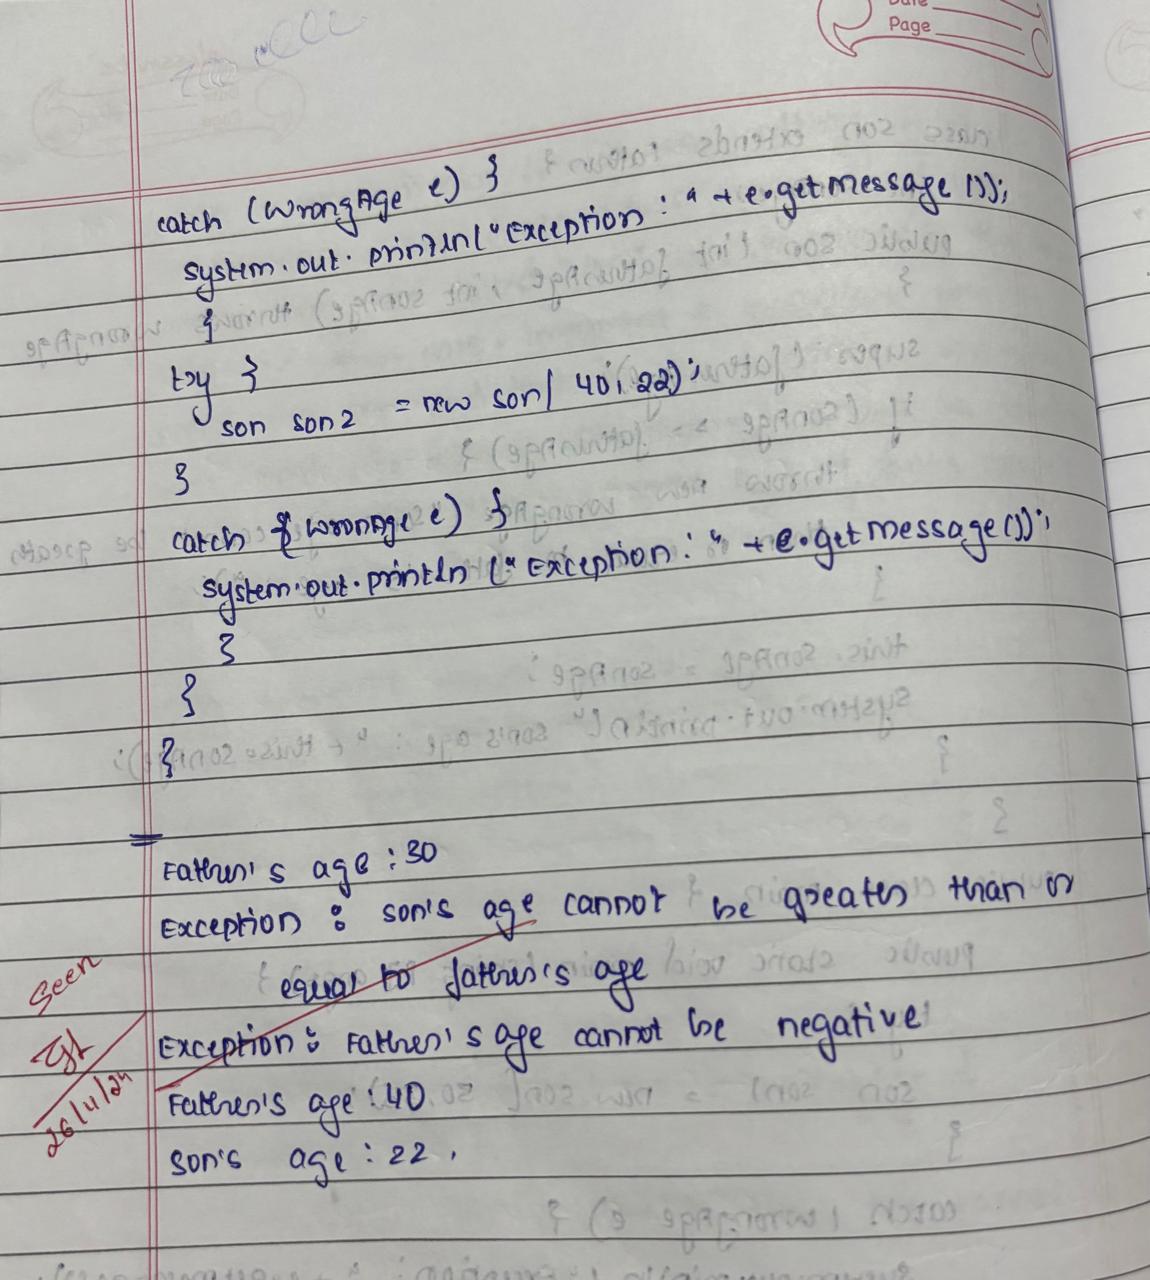 Date
Page
catch (WrongAge e) }
system.out.println("Exception : " + e.getmessage ());
}
try }
son son2 = new son( 40, 22);
}
catch { WronAge e) }
system.out.println (" Exception : " + e.getmessage());
}
}
}
Father's age : 30
Exception : son's age cannot be greater than or
equal to father's age
Exception : Father's age cannot be negative
Father's age : 40
son's age : 22 .
Seen
26/4/24